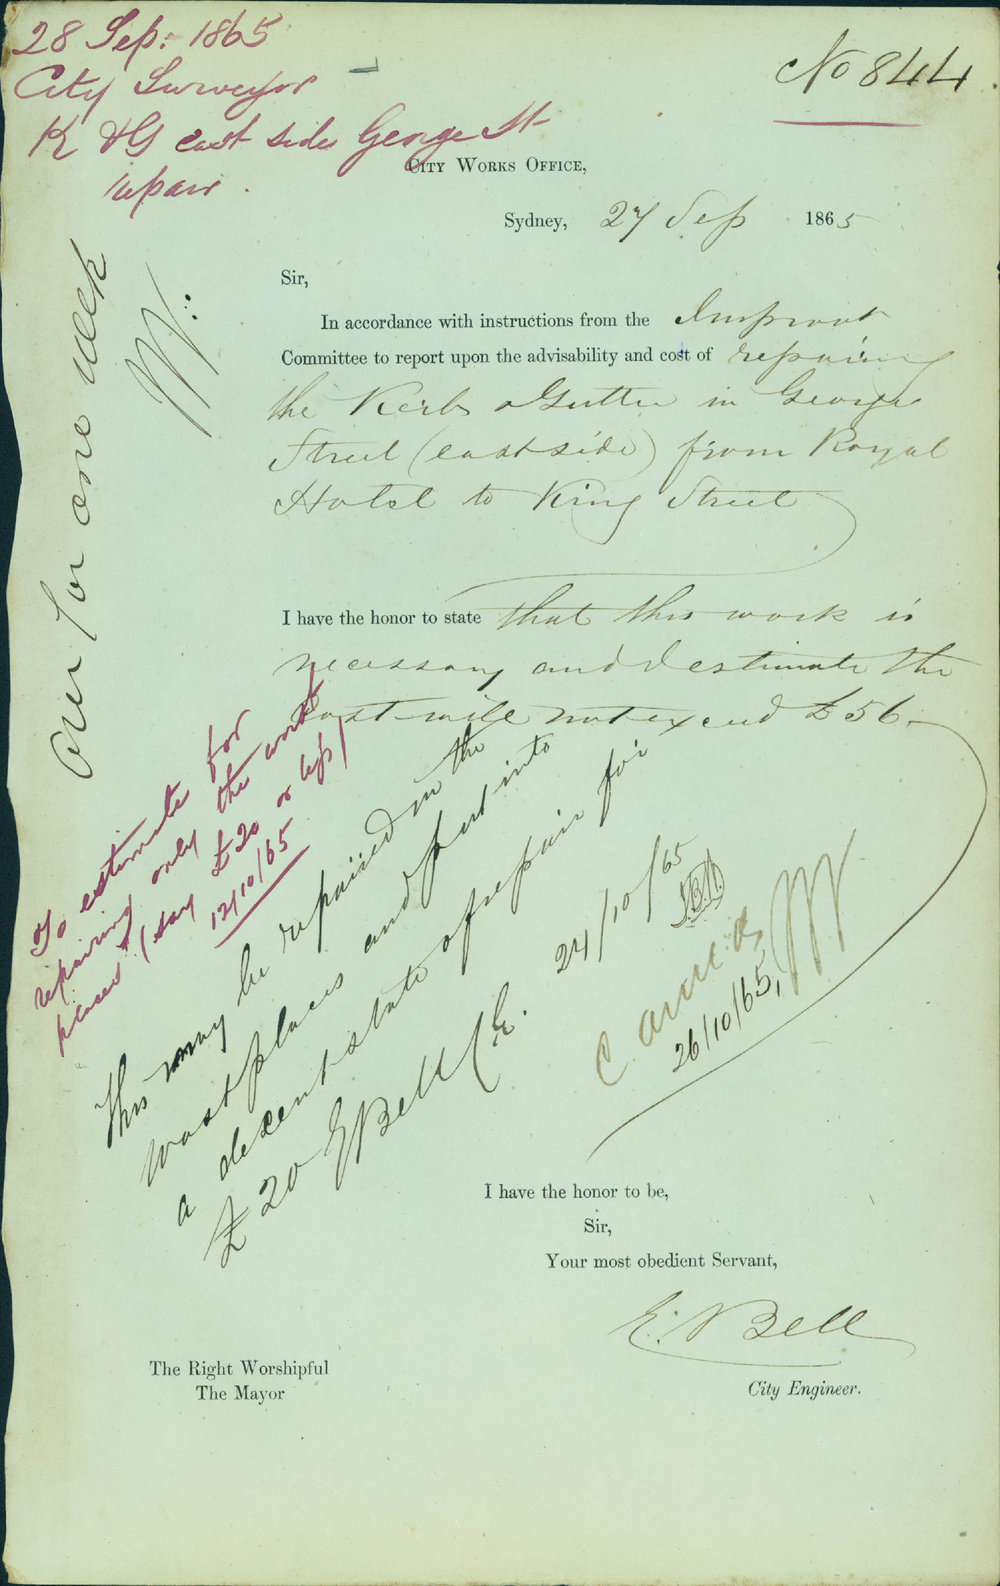 28 Sep: 1865
City Surveyor
K & G east side George St
repair.
No 844
CITY WORKS OFFICE,
Sydney, 27 Sep 1865
Sir,
In accordance with instructions from the Improvt
Committee to report upon the advisability and cost of repairing
the Kerb & Gutter in George
Street (east side) from Royal
Hotel to King Street
I have the honor to state that this work is
necessary and I estimate the
cost will not exceed £56-
over for one week
W.
To estimate for
repairing only the worst
places (say £20 or less)
12/10/65
This may be repaired in the
worst places and put into
a decent state of repair for
£20 E Bell C.E. 24/10/65
26/10/65
I have the honor to be,
Sir,
Your most obedient Servant,
E. Bell
City Engineer.
The Right Worshipful
The Mayor